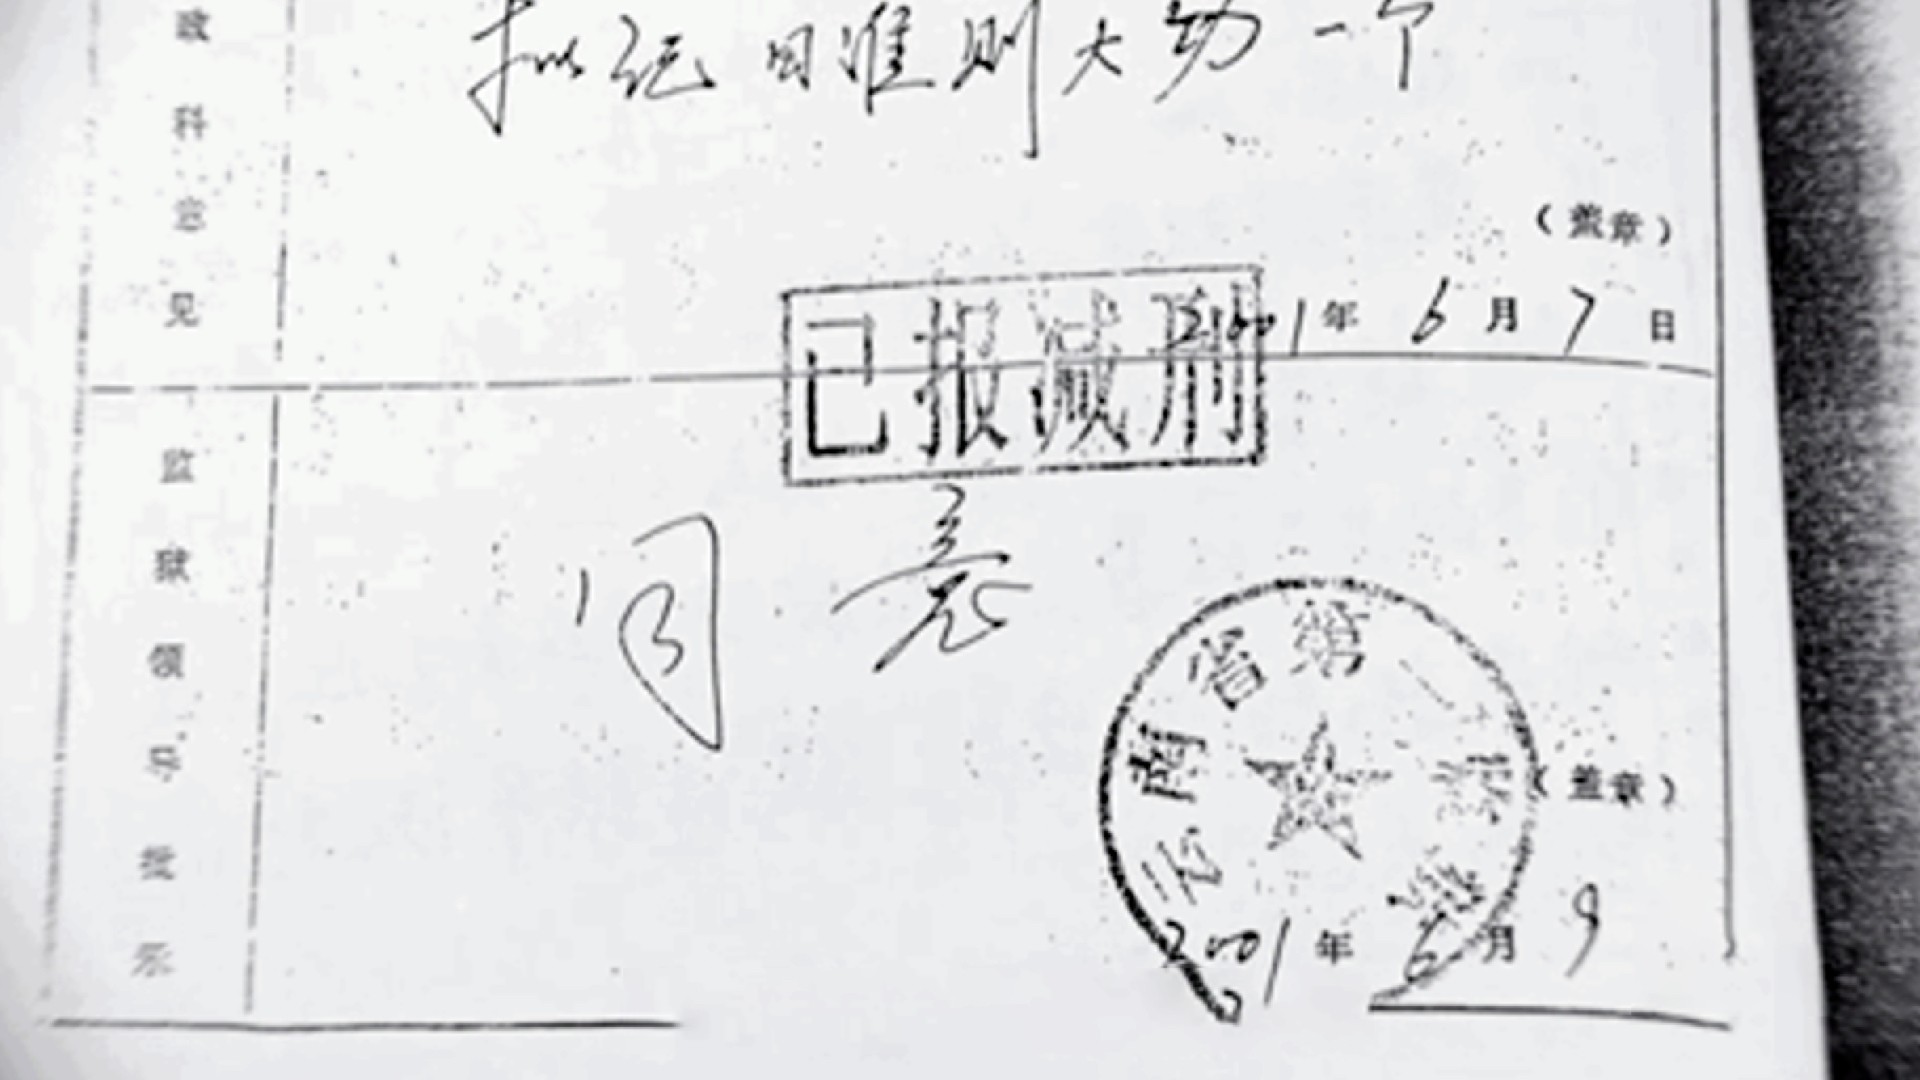 政科意见
拟记日准则大功一个
（盖章）
2001年6月7日
已报减刑
监狱领导批示
同意
云南省第一监狱
（盖章）
2001年6月9